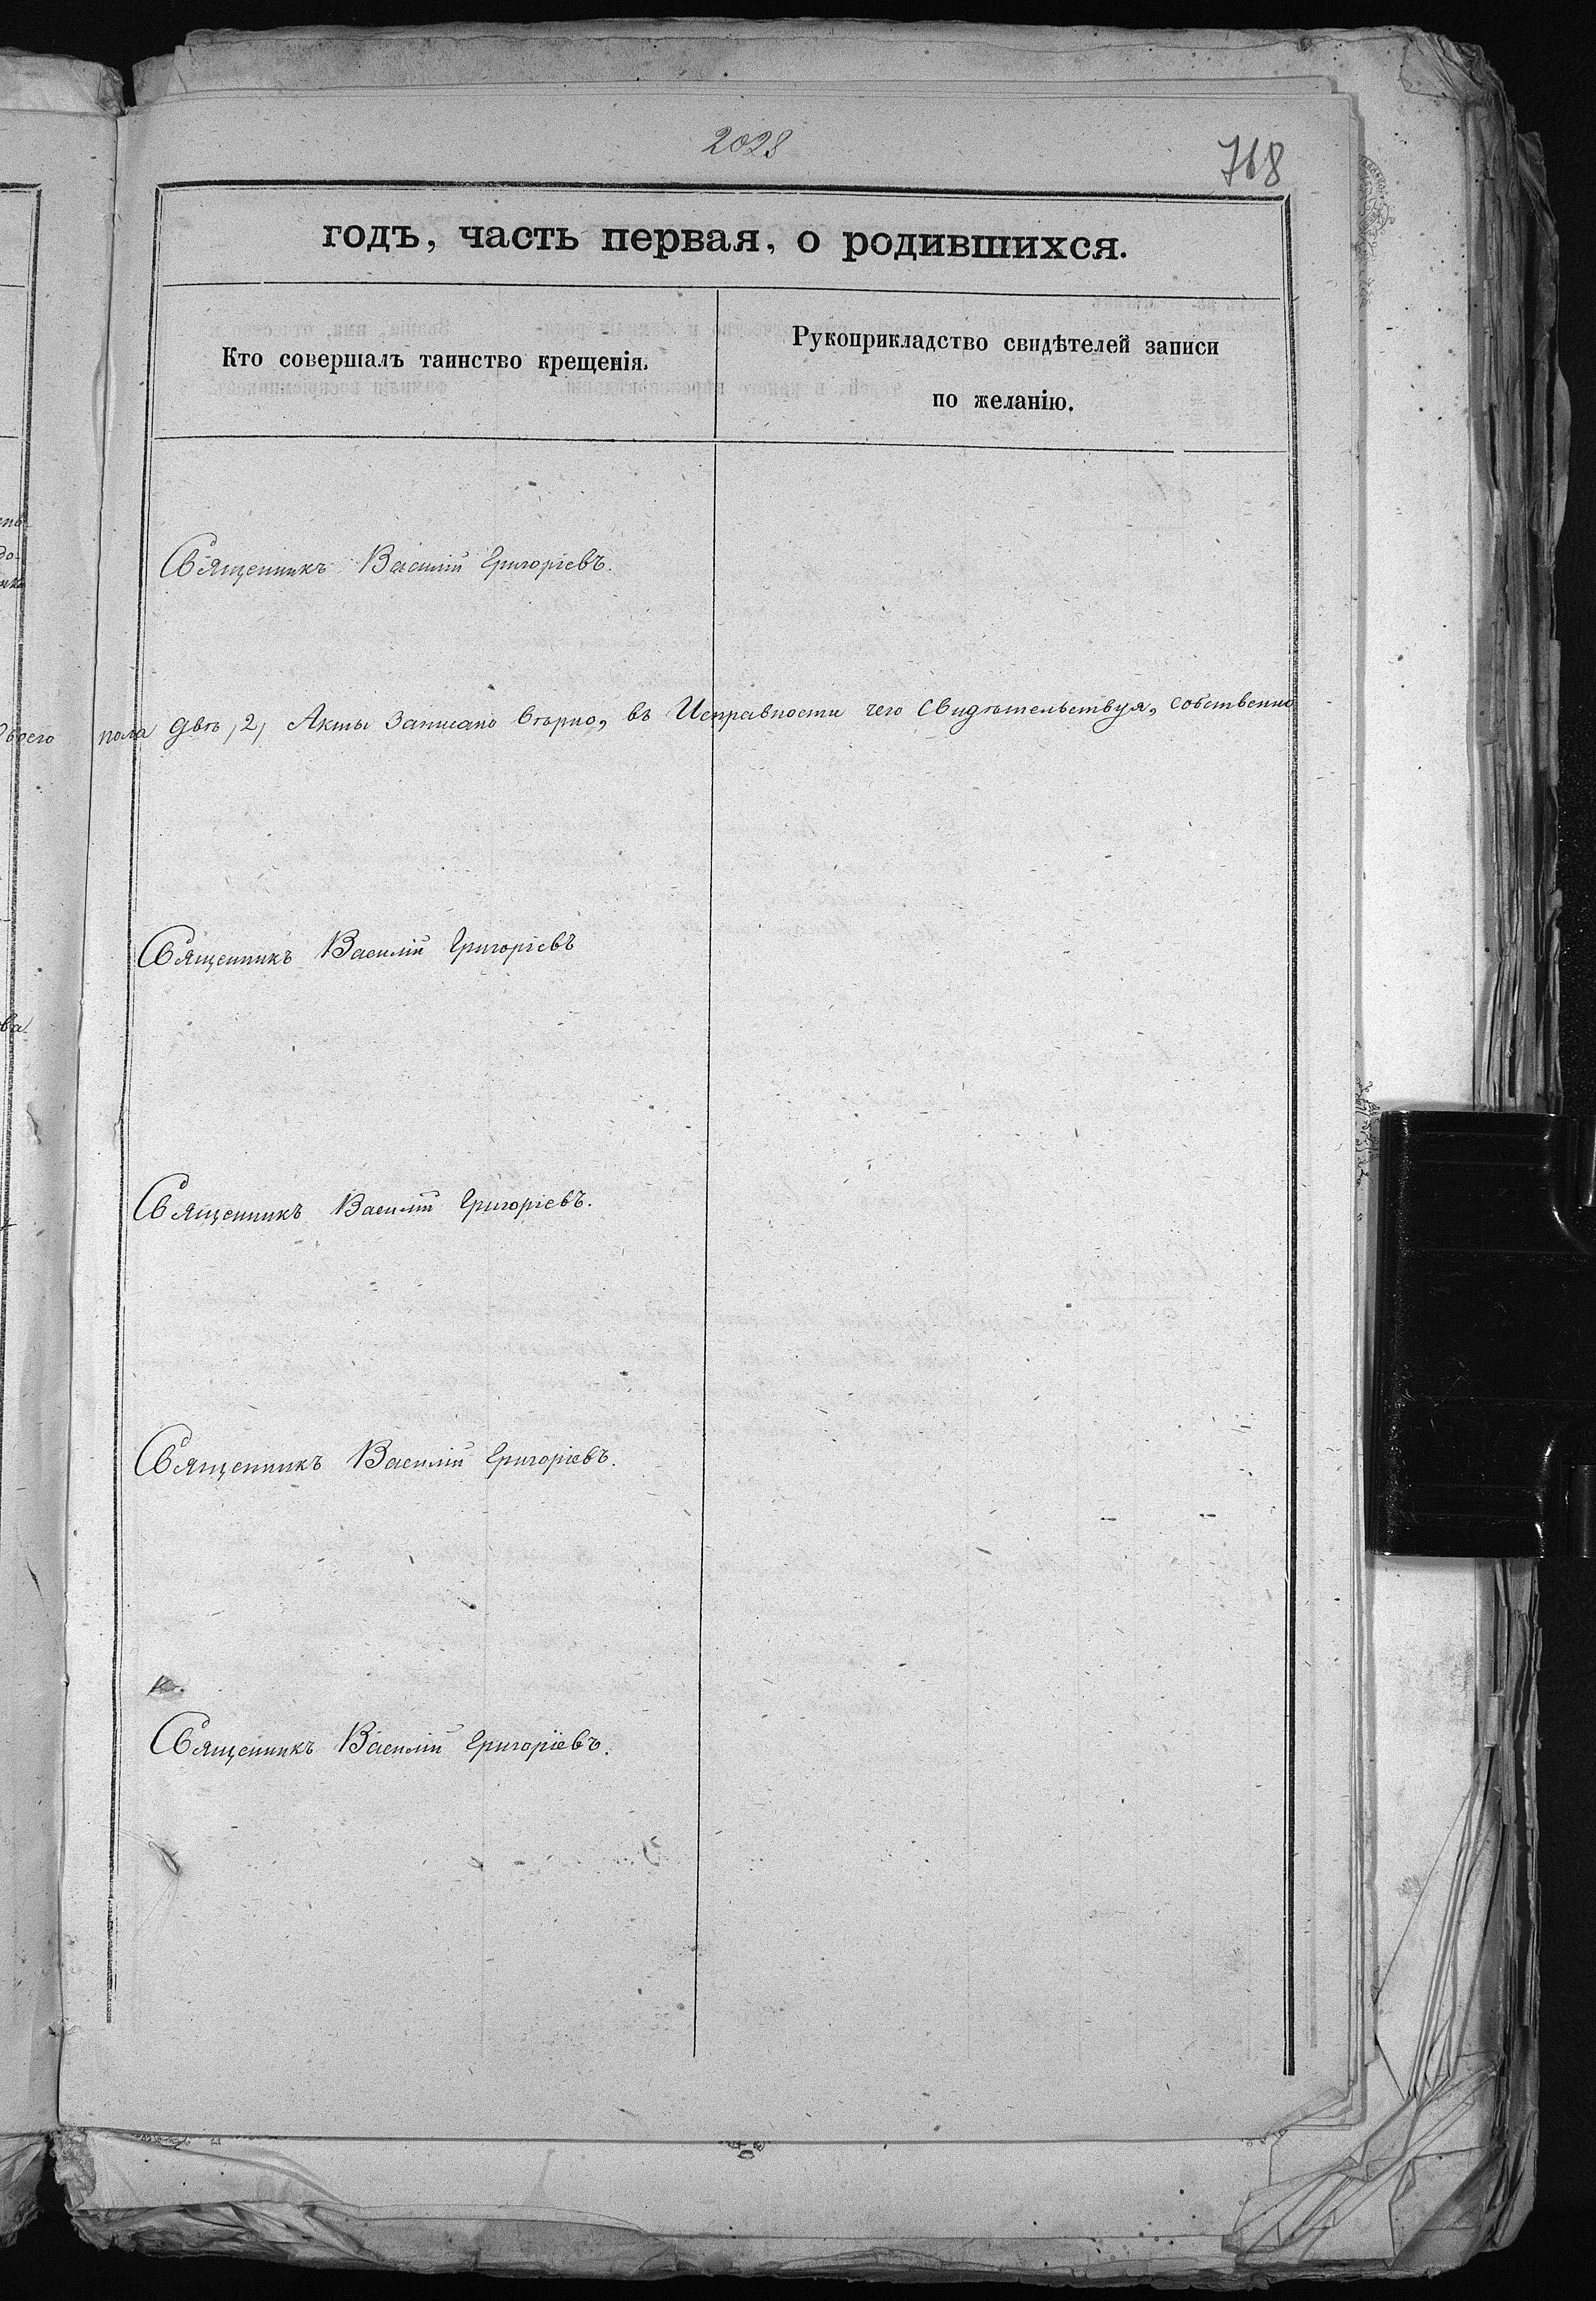 2028
718
годъ, часть первая, о родившихся.
Кто совершалъ таинство крещенія.
Рукоприкладство свидѣтелей записи
по желанію.
Священникъ Василій Григоріевъ.
пола двѣ /2/ Акты записано вѣрно, въ Исправности чего Свидѣтельствуя, собственно
Священникъ Василій Григоріевъ
Священникъ Василій Григоріевъ.
Священникъ Василій Григоріевъ.
Священникъ Василій Григоріевъ.